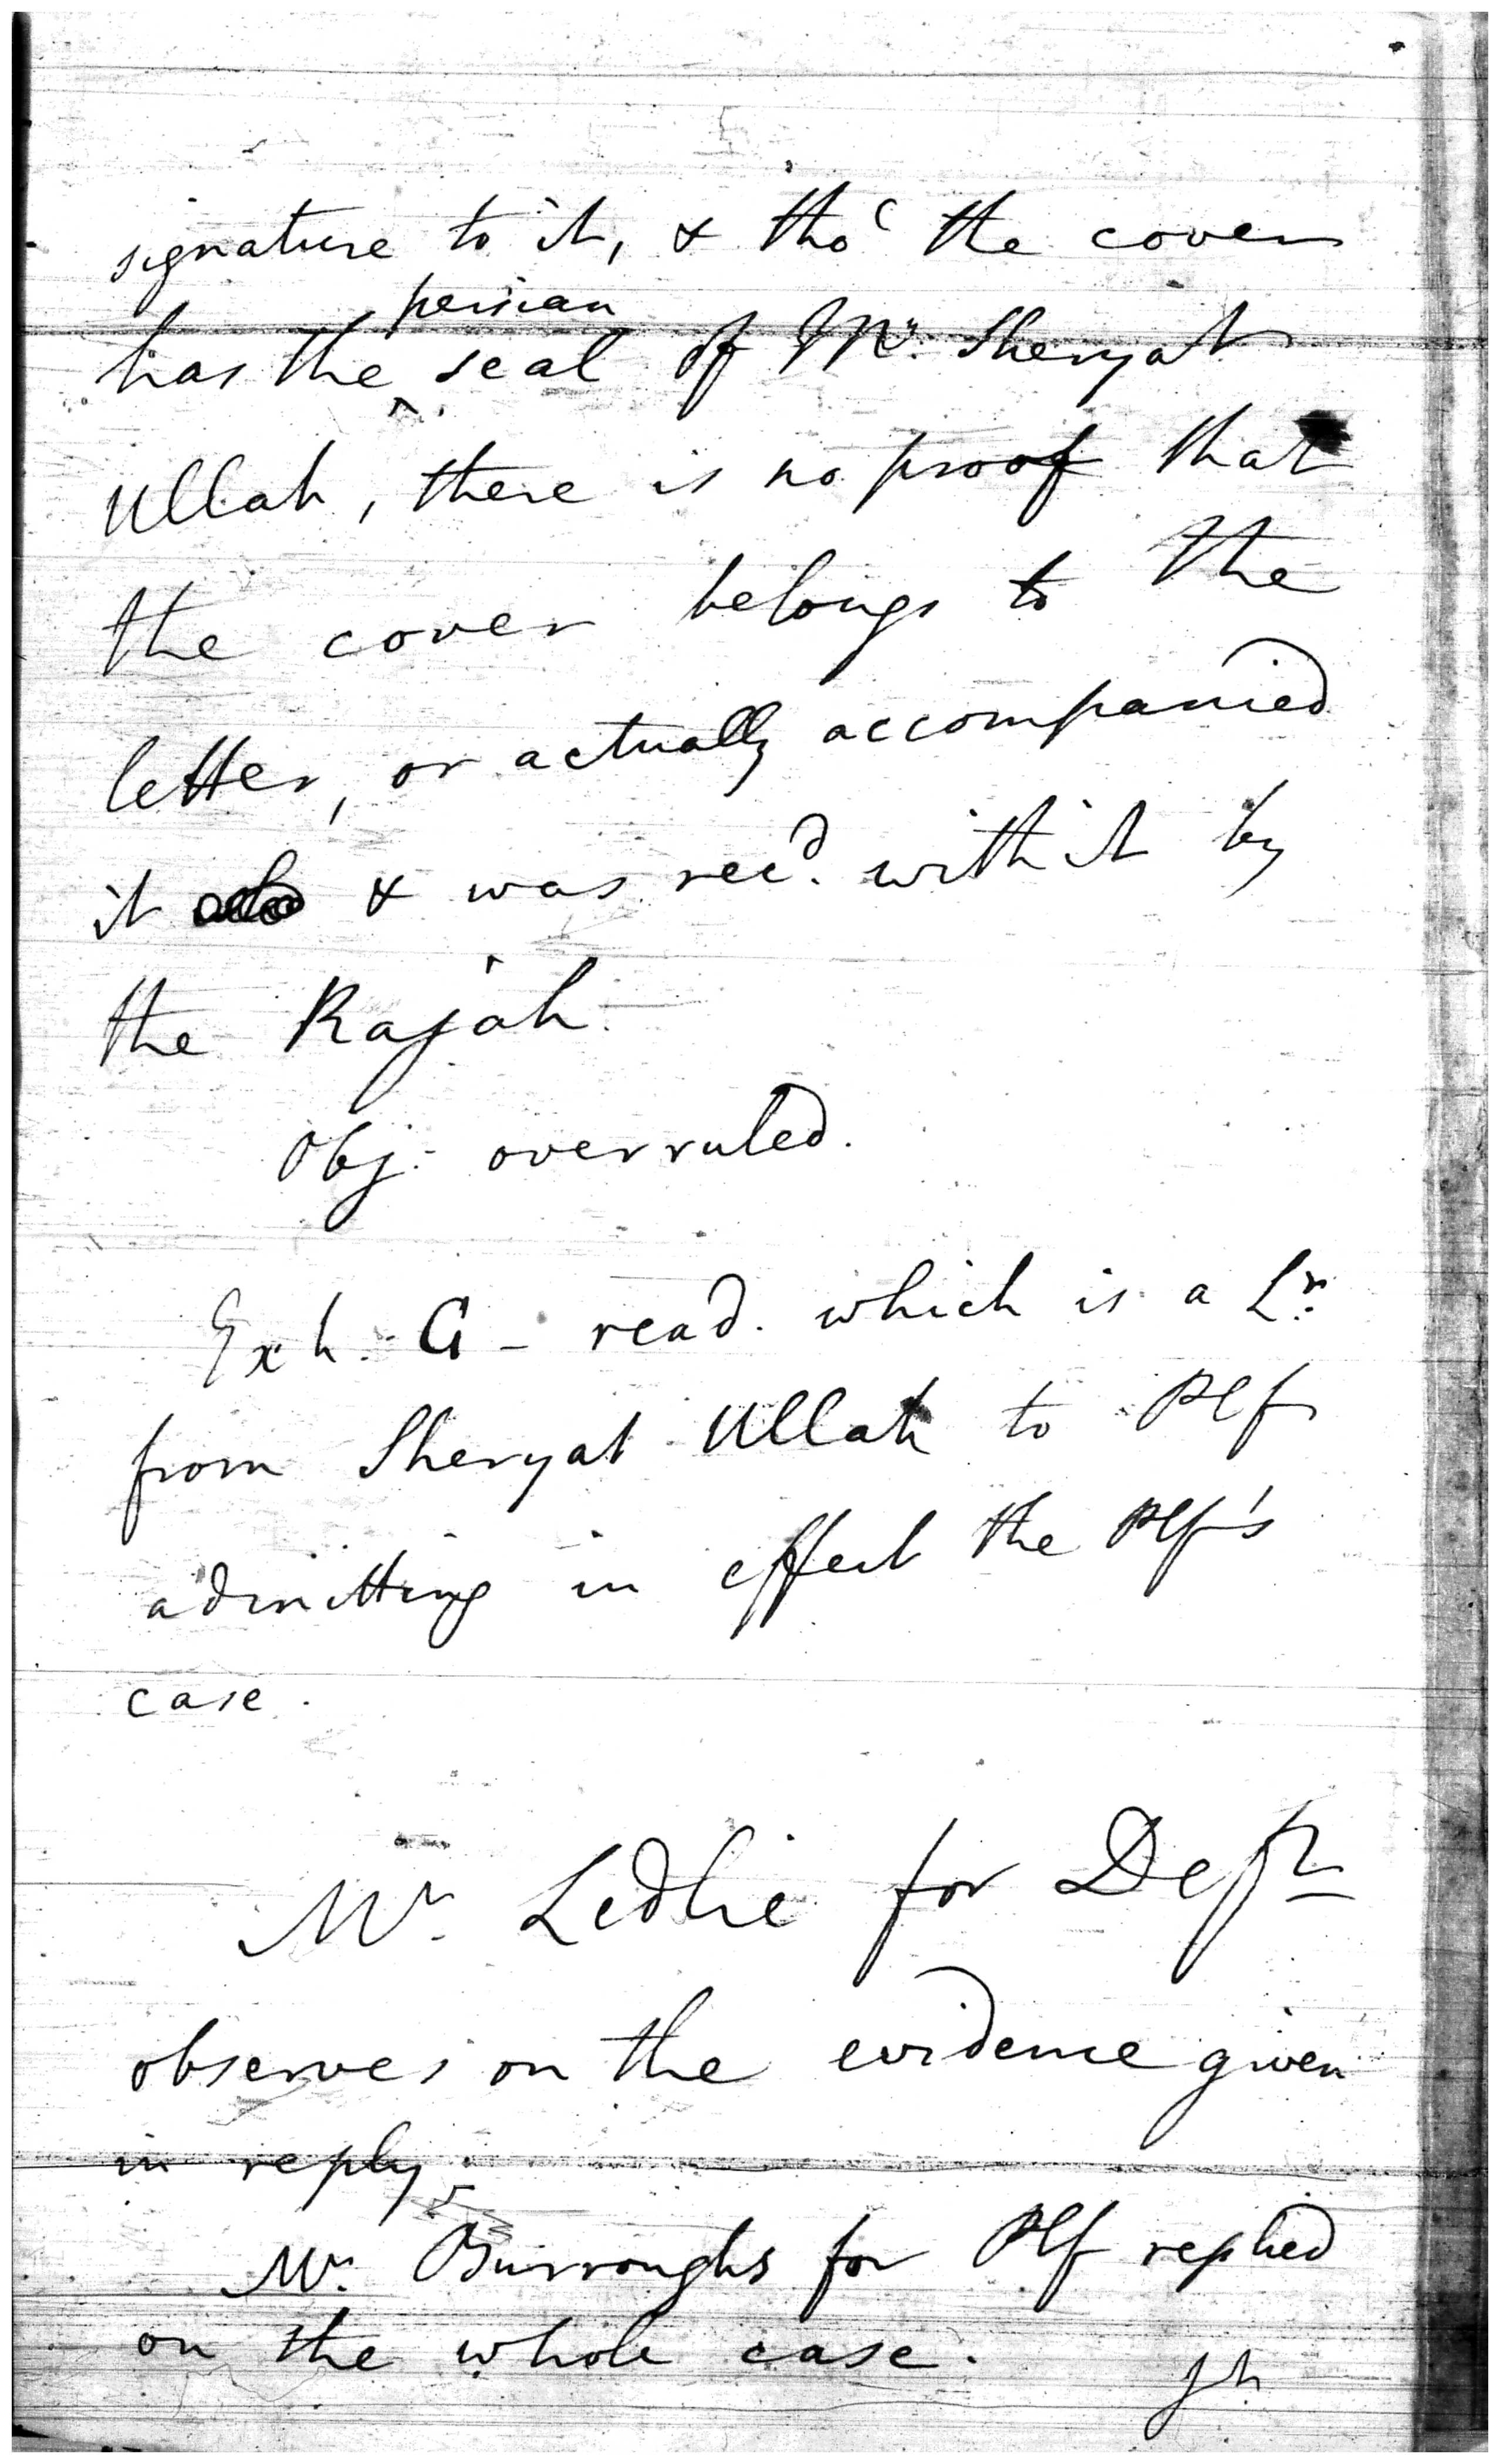 signature to it, & tho' the cover
has the persian seal of Mr. Sheryat
Ullah, there is no proof that
the cover belongs to the
letter, or actually accompanied
it & was recd. with it by
the Rajah.
Obj: overruled.
Exh. G - read. which is a Lr.
from Sheryat Ullah to Plf
admitting in effect the Plf's
case.
Mr. Ledlie for Deft
observes on the evidence given
in reply.
Mr. Burroughs for Plf replied
on the whole case.